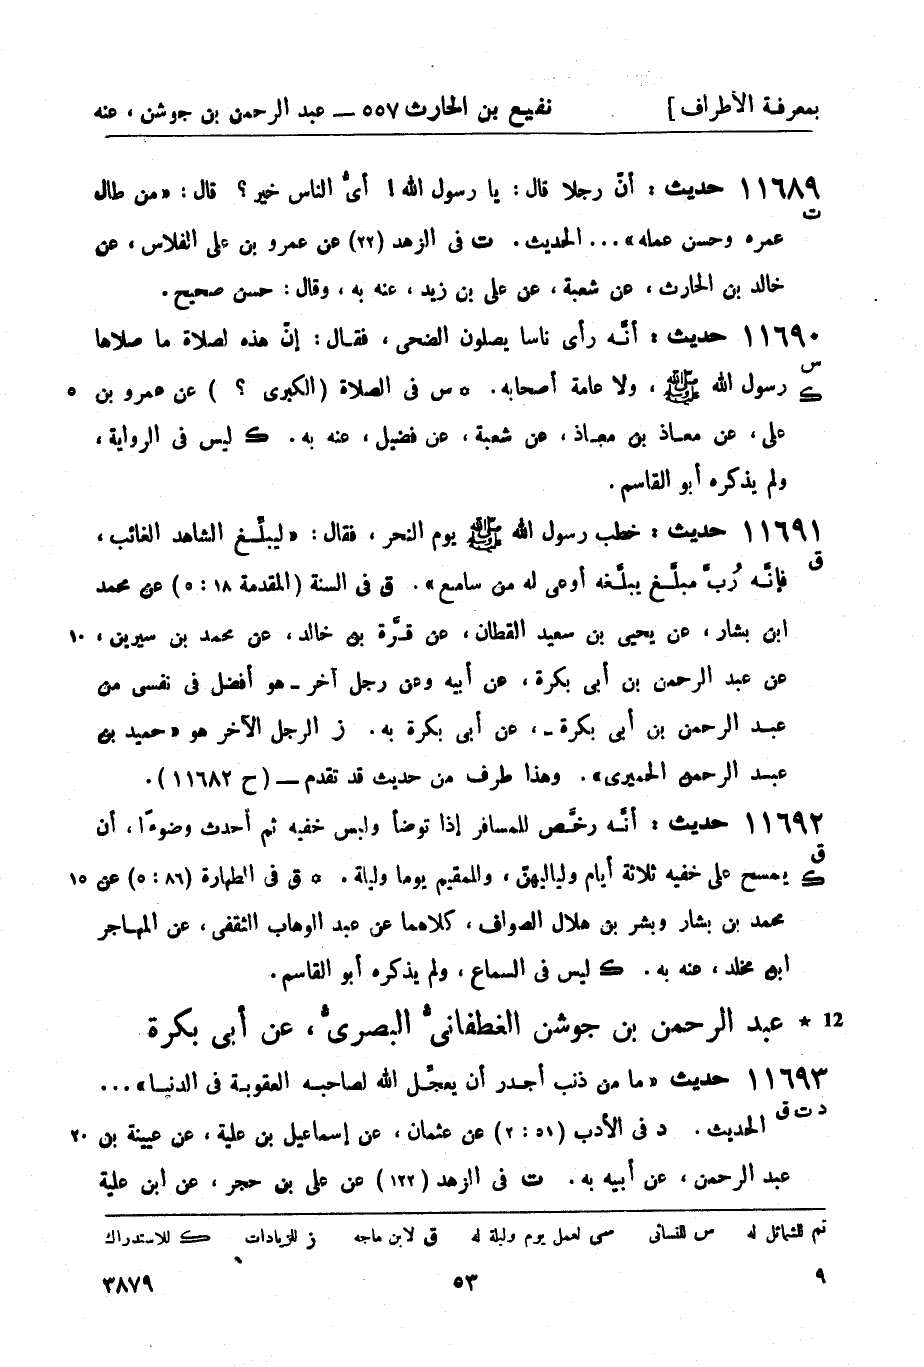 بمعرفة الأطراف ] نفيع بن الحارث ٥٥٧ ــ عبد الرحمن بن جوشن ، عنه
١١٦٨٩ حديث : أنّ رجلا قال : يا رسول الله ! أىُّ الناس خير ؟ قال : «من طال
ت
عمره وحسن عمله» ... الحديث . ت فى الزهد (٢٢) عن عمرو بن على الفلاس ، عن
خالد بن الحارث ، عن شعبة ، عن على بن زيد ، عنه به ، وقال : حسن صحيح .
١١٦٩٠ حديث : أنَّه رأى ناسا يصلون الضحى ، فقال : إنّ هذه لصلاة ما صلاها
س
ك رسول الله ﷺ ، ولا عامة أصحابه . * س فى الصلاة (الكبرى ؟ ) عن عمرو بن ٥
على ، عن معاذ بن معاذ ، عن شعبة ، عن فضيل ، عنه به . ك ليس فى الرواية ،
ولم يذكره أبو القاسم .
١١٦٩١ حديث : خطب رسول الله ﷺ يوم النحر ، فقال : «ليبلِّغ الشاهد الغائب ،
ق
فإنَّه رُبَّ مبلَّغ يبلّغه أوعى له من سامع» . ق فى السنة (المقدمة ١٨ : ٥) عن محمد
ابن بشار ، عن يحيى بن سعيد القطان ، عن قرَّة بن خالد ، عن محمد بن سيرين ، ١٠
عن عبد الرحمن بن أبى بكرة ، عن أبيه وعن رجل آخر ــ هو أفضل فى نفسى من
عبد الرحمن بن أبى بكرة ــ ، عن أبى بكرة به . ز الرجل الآخر هو «حميد بن
عبد الرحمن الحميرى» . وهذا طرف من حديث قد تقدم ــ (ح ١١٦٨٢) .
١١٦٩٢ حديث : أنَّه رخَّص للمسافر إذا توضأ ولبس خفيه ثم أحدث وضوءًا ، أن
ق
ك يمسح على خفيه ثلاثة أيام ولياليهنّ ، وللمقيم يوما وليلة . * ق فى الطهارة (٨٦ : ٥) عن ١٥
محمد بن بشار وبشر بن هلال الصواف ، كلاهما عن عبد الوهاب الثقفى ، عن المهاجر
ابن مخلد ، عنه به . ك ليس فى السماع ، ولم يذكره أبو القاسم .
12 * عبد الرحمن بن جوشن الغطفانىُّ البصرىُّ ، عن أبى بكرة
١١٦٩٣ حديث «ما من ذنب أجدر أن يعجّل الله لصاحبه العقوبة فى الدنيا» ...
د ت ق
الحديث . د فى الأدب (٥١ : ٢) عن عثمان ، عن إسماعيل بن علية ، عن عيينة بن ٢٠
عبد الرحمن ، عن أبيه به . ت فى الزهد (١٢٢) عن على بن حجر ، عن ابن علية
تم للشمائل له س للنسائى سى لعمل يوم وليلة له ق لابن ماجه ز للزيادات ك للاستدراك
٩ ٥٣ ٣٨٧٩